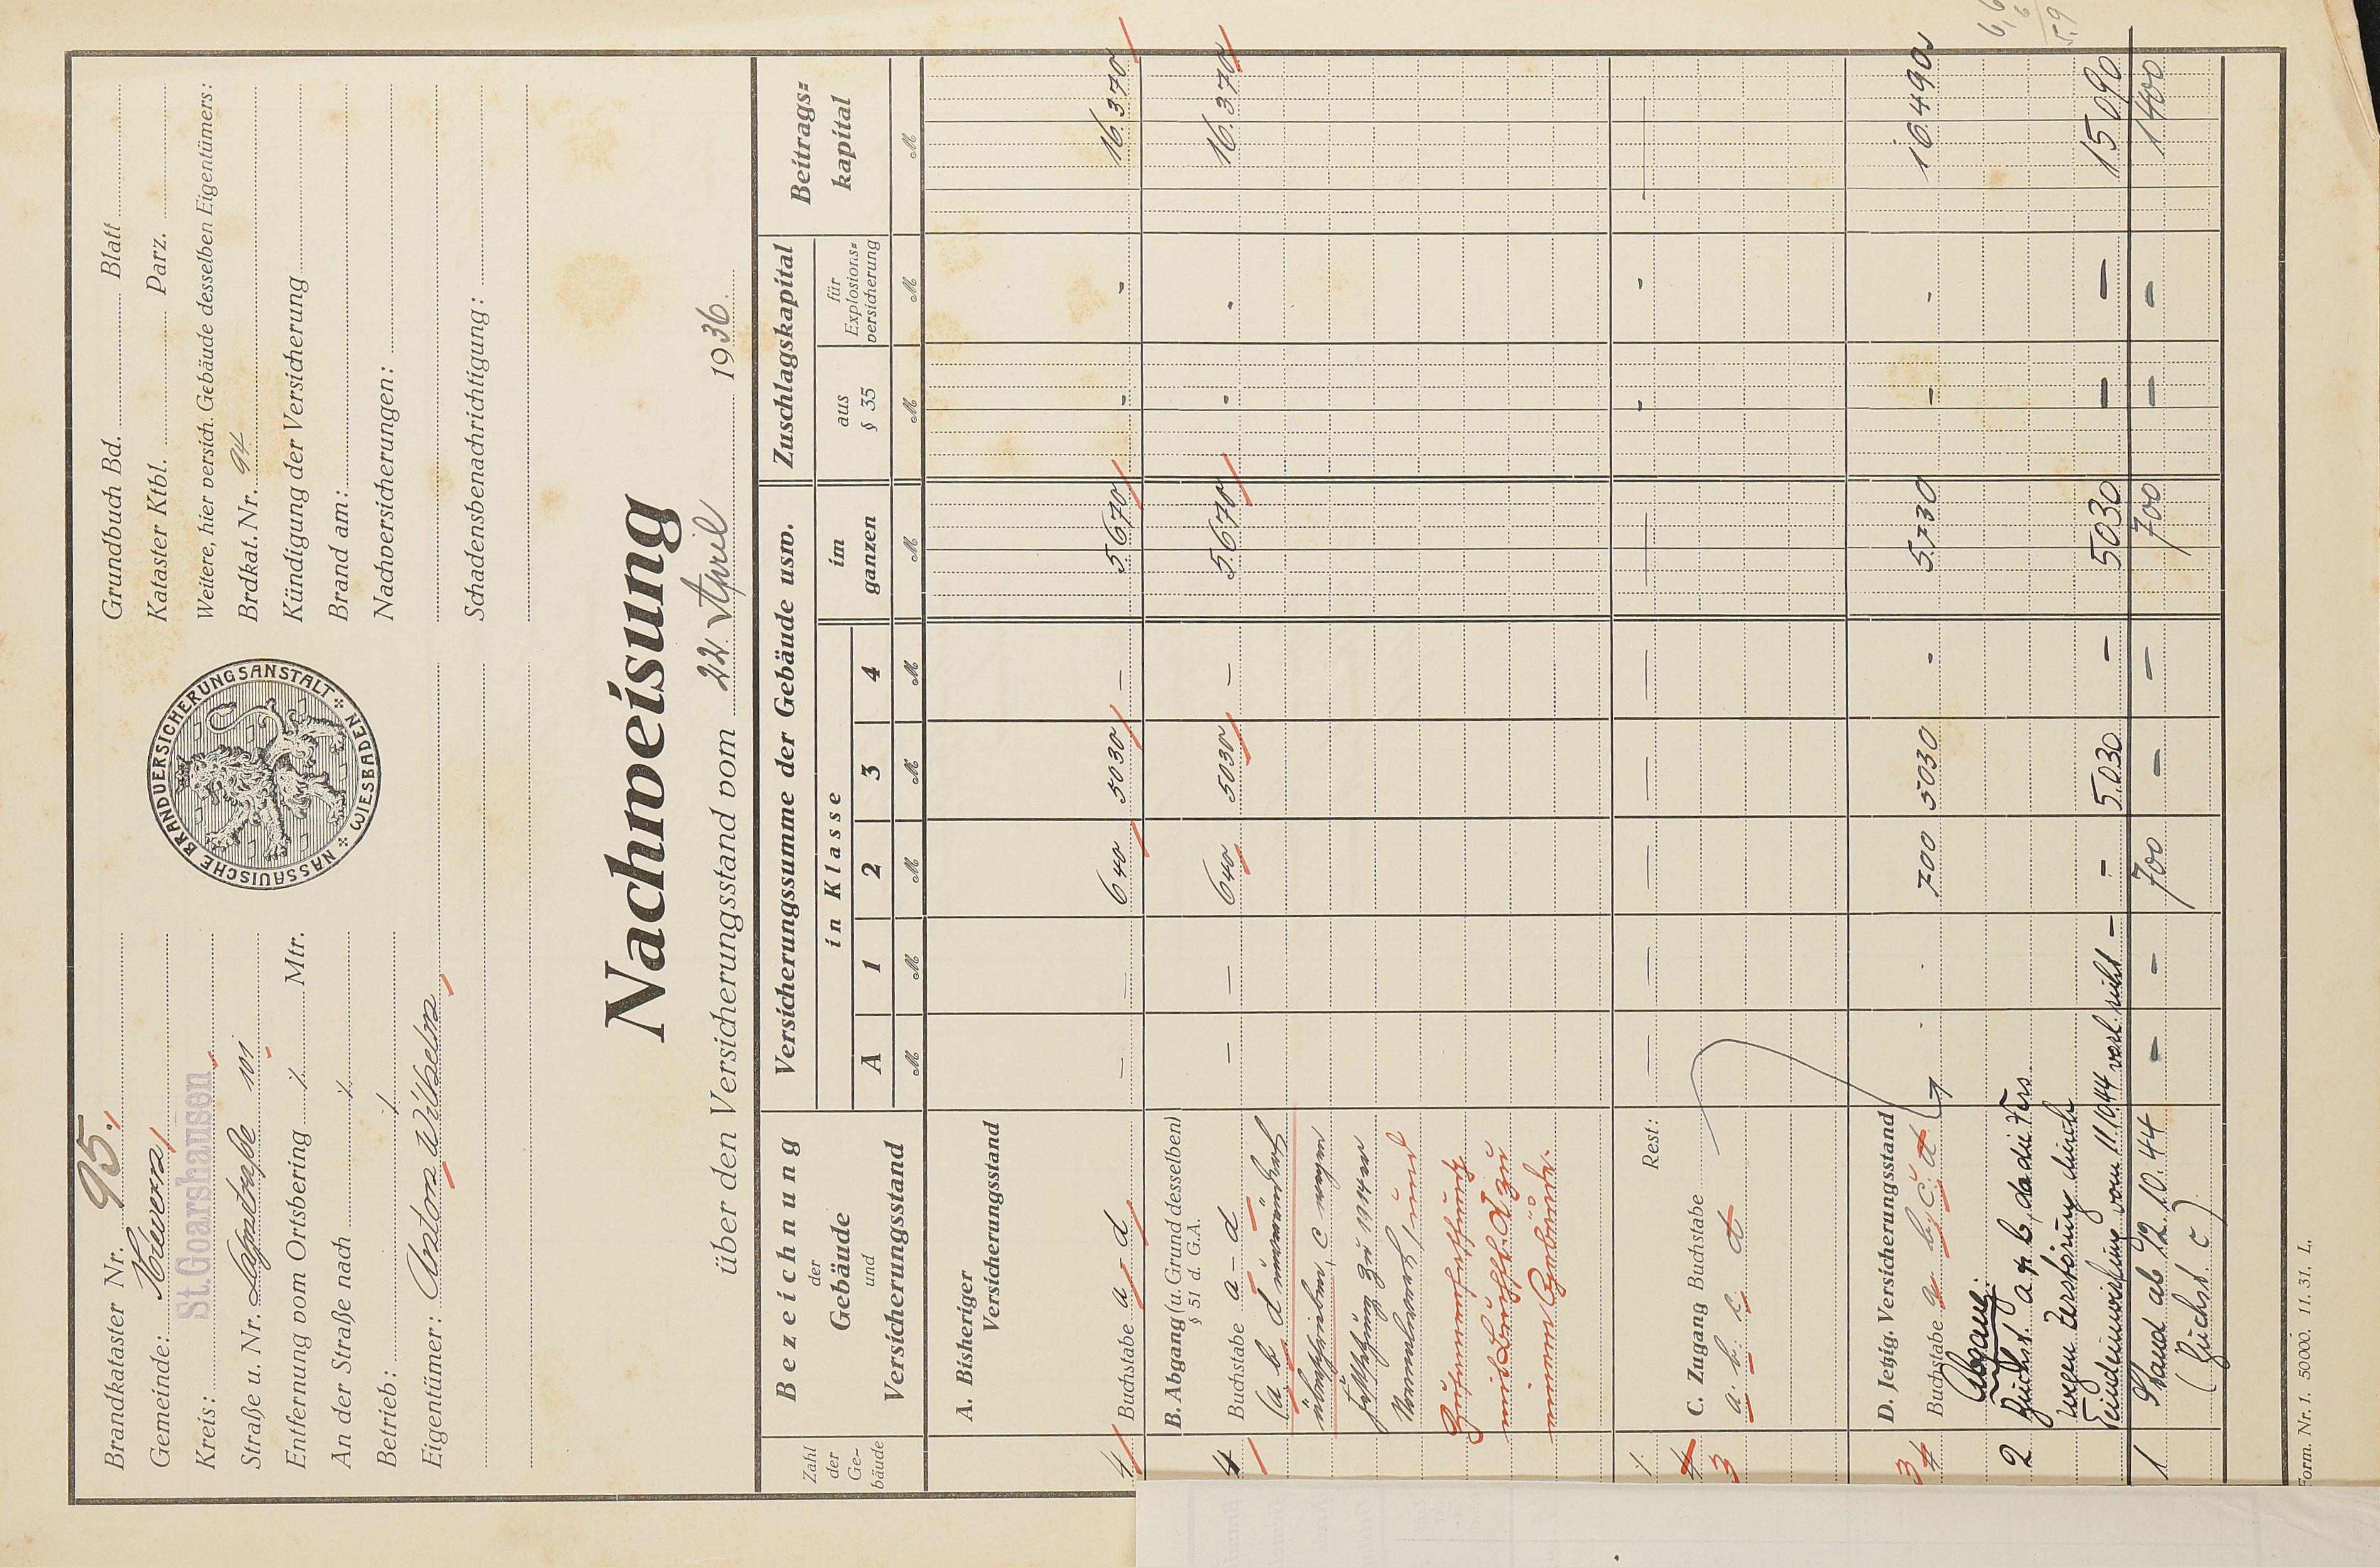 Brandkataster Nr. 95.
Gemeinde:
Kreis: St. Goarshausen
Straße u. Nr. Lahnstraße 101
Entfernung vom Ortsbering ./. Mtr.
An der Straße nach ./.
Betrieb: ./.
Eigentümer: Anton Wilhelm
NASSAUISCHE BRANDVERSICHERUNGSANSTALT WIESBADEN
Grundbuch Bd. Blatt
Kataster Ktbl. Parz.
Weitere, hier versich. Gebäude desselben Eigentümers:
Brdkat. Nr. 94
Kündigung der Versicherung
Brand am:
Nachversicherungen:
Schadensbenachrichtigung:
Nachweisung
über den Versicherungsstand vom 22. April 1936.
Zahl der Gebäude
Bezeichnung der Gebäude und Versicherungsstand
Versicherungssumme der Gebäude usw.
in Klasse
A 1 2 3 4
im ganzen
Zuschlagskapital
aus § 35
für Explosionsversicherung
Beitragskapital
M M M M M M M M M
A. Bisheriger Versicherungsstand
4 Buchstabe a-d — — 640 5030 — 5670 - - 16370
B. Abgang (u. Grund desselben)
§ 51 d. G.A.
4 Buchstabe a-d — — 640 5030 — 5670 - - 16370
(a b d unverändert
c wegen
zu 1914er
und
mit Buchst. d zu
einem Gebäude.
Rest: — — — — — — - - —
C. Zugang Buchstabe
4 3 a. b. c d
D. Jetzig. Versicherungsstand
3 4 Buchstabe a b, c. d 700 5030 - 5730 - - 16490
Abgang:
2 Buchst. a + b, da die Vers.
wegen Zerstörung durch
Feindeinwirkung vom 11.10.44 - 5.030 - 5030 - - 15090
1 Stand ab 12.10.44 - - 700 - - 700 - - 1400
(Buchst. c)
Form. Nr. 1. 50000. 11. 31. L.